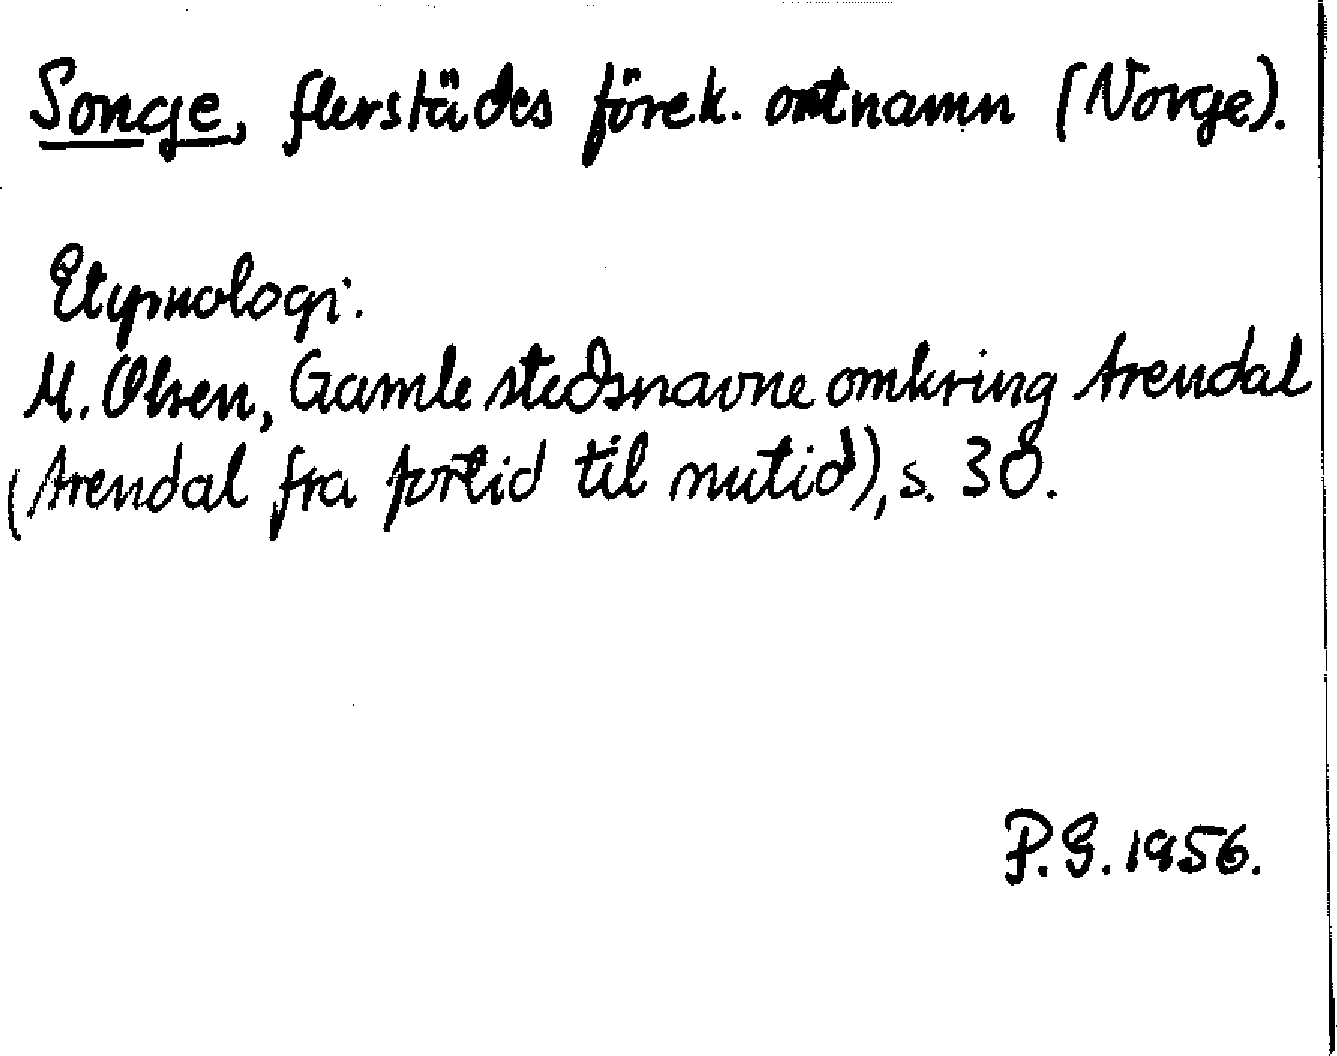 Songe, flerstädes förek. ortnamn (Norge).
Etymologi.
M. Olsen, Gamle stedsnavne omkring Arendal
(Arendal fra fortid til nutid), s. 30.
P.G. 1956.